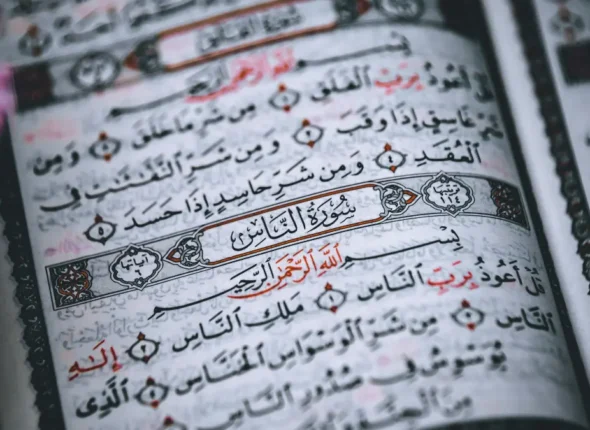 سُورَةُ الْفَلَقِ
بِسْمِ اللَّهِ الرَّحْمَٰنِ الرَّحِيمِ
أَعُوذُ بِرَبِّ ٱلْفَلَقِ ١ مِن شَرِّ مَا خَلَقَ ٢ وَمِن
شَرِّ غَاسِقٍ إِذَا وَقَبَ ٣ وَمِن شَرِّ ٱلنَّفَّٰثَٰتِ فِي
ٱلْعُقَدِ ٤ وَمِن شَرِّ حَاسِدٍ إِذَا حَسَدَ ٥
ترتيبها ١١٤ سُورَةُ النَّاسِ آياتها ٦
بِسْمِ اللَّهِ الرَّحْمَٰنِ الرَّحِيمِ
قُلْ أَعُوذُ بِرَبِّ ٱلنَّاسِ ١ مَلِكِ ٱلنَّاسِ ٢ إِلَٰهِ
ٱلنَّاسِ ٣ مِن شَرِّ ٱلْوَسْوَاسِ ٱلْخَنَّاسِ ٤ ٱلَّذِي
يُوَسْوِسُ فِي صُدُورِ ٱلنَّاسِ
مِنَ ٱلْجِنَّةِ